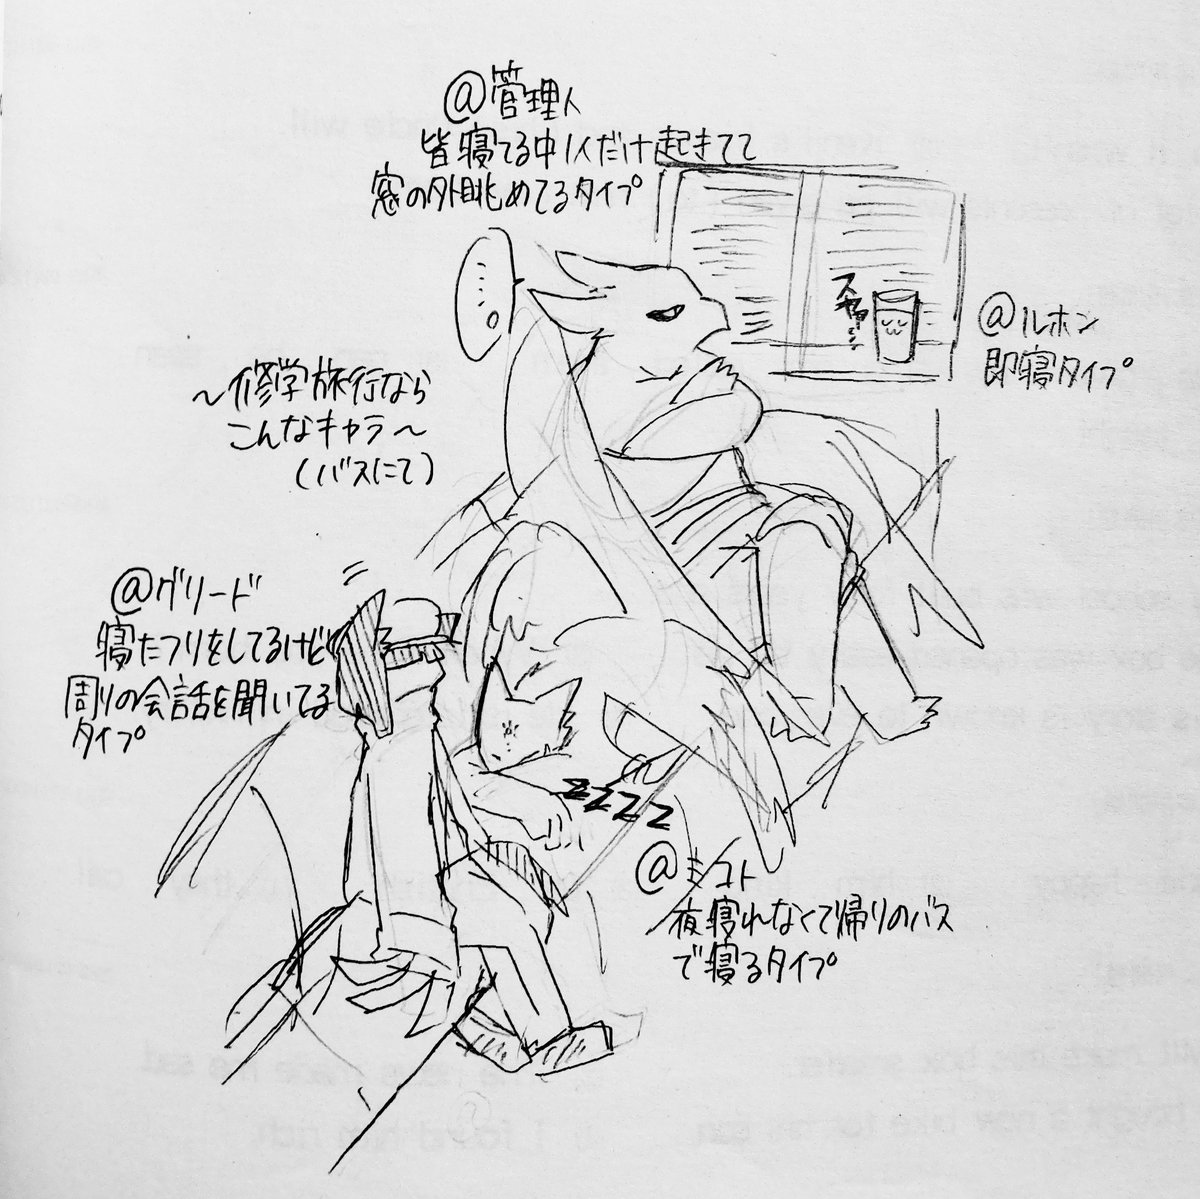 @管理人
皆寝てる中1人だけ起きてて
窓の外眺めてるタイプ
……。
スヤァ…
@ルホン
即寝タイプ
～修学旅行なら
こんなキャラ～
(バスにて)
@グリード
寝たフリをしてるけど
周りの会話を聞いてる
タイプ
zzzz
@ミコト
夜寝れなくて帰りのバス
で寝るタイプ